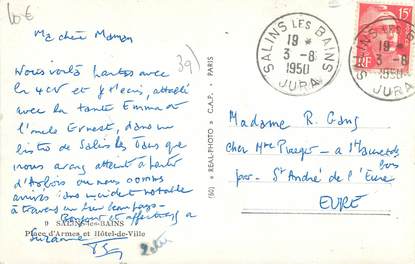 10€
Ma chère Maman
39)
Nous voilà avec
la 4CV et attablé
avec la tante Emma et
l'oncle Ernest, dans un
de Salins les Bains que
nous avons atteint à partir
d'Arbois ou nous sommes
arrivés sans incident notable
à travers un beau pays.
Bonjour et affectueux
Suzanne
9 SALINS-les-BAINS
Place d'Armes et Hôtel-de-Ville
(60) "REAL-PHOTO" C.A.P. - PARIS
SALINS LES BAINS
19 *
3 - 8
1950
JURA
15F
RF
SALINS LES BAINS
19 *
3 - 8
1950
JURA
Madame R. Gang
chez Mme - à St
par - St André de l'Eure
EURE